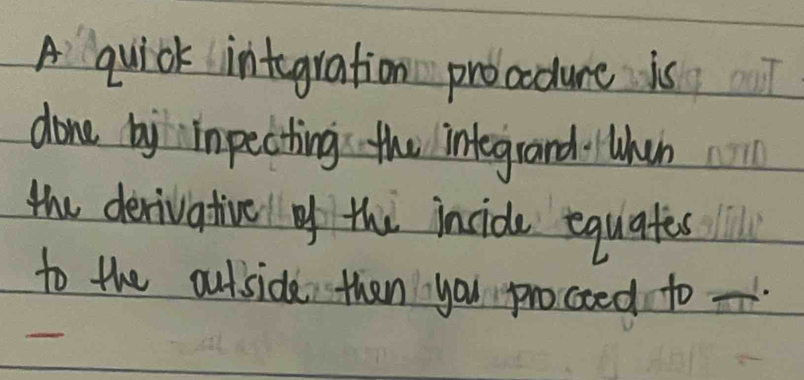 A quick integration procedure is
done by inpecting the integrand. When
the derivative of the inside equates
to the outside then you proceed to —.